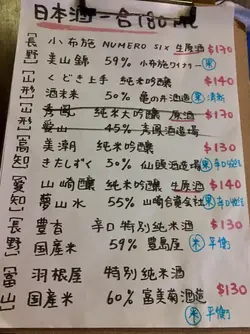 日本酒一合180ml
[長野] 小布施 NUMERO SIX 生原酒 $170
美山錦 59% 小布施ワイナリー
[山形] くどき上手 純米吟釀 $140
酒未来 50% 亀の井酒造
秀鳳 純米大吟釀 原酒 $170
愛山 45% 秀鳳酒造場
[高知] 美潮 純米吟釀 $130
きたしずく 50% 仙頭酒造場
[愛知] 山崎釀 純米吟釀 生原酒 $140
夢山水 55% 山崎合資会社
[長野] 豊香 辛口特別純米 $130
国産米 59% 豊島屋 米 平衡
[富山] 羽根屋 特別純米酒
国産米 60% 富美菊酒造 $130
米 平衡